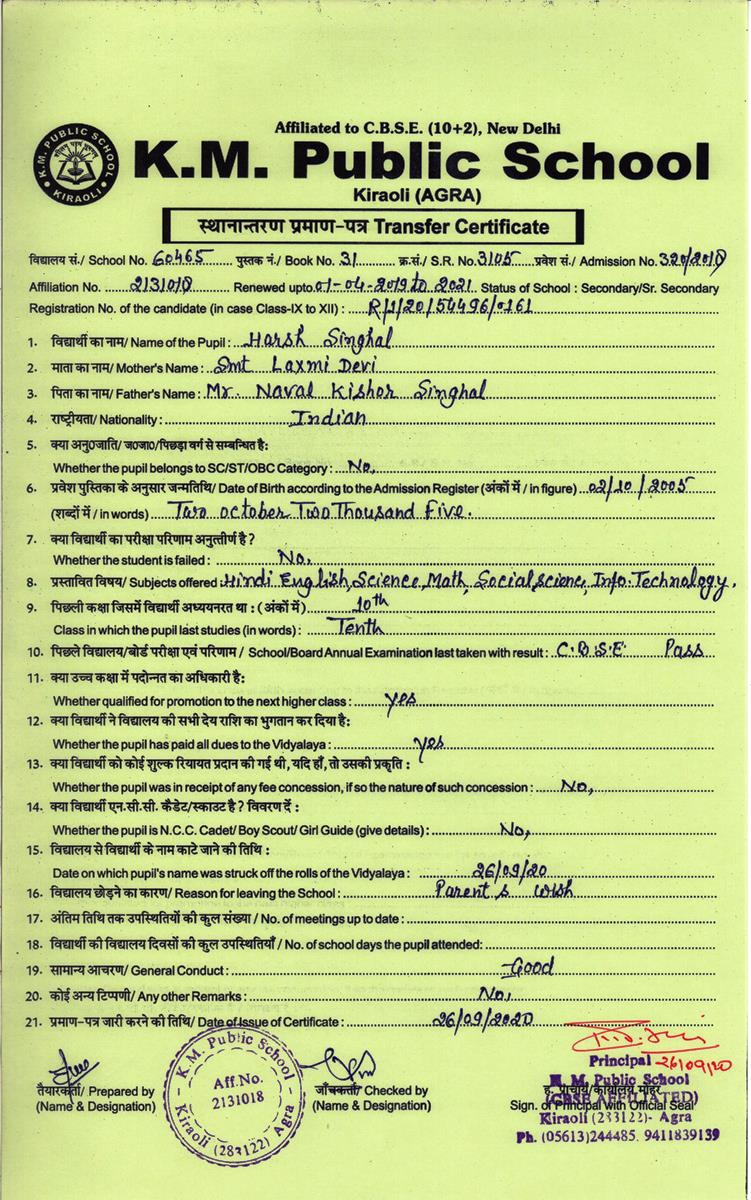 Affiliated to C.B.S.E. (10+2), New Delhi
K.M. PUBLIC SCHOOL
KIRAOLI
K.M. Public School
Kiraoli (AGRA)
स्थानान्तरण प्रमाण-पत्र Transfer Certificate
विद्यालय सं./ School No. 60465 पुस्तक नं./ Book No. 31 क्र.सं./ S.R. No. 3105 प्रवेश सं./ Admission No. 320/2018
Affiliation No. 2131018 Renewed upto 01-04-2019 to 2021 Status of School : Secondary/Sr. Secondary
Registration No. of the candidate (in case Class-IX to XII) : R/1/20/54496/0161
1. विद्यार्थी का नाम/ Name of the Pupil : Harsh Singhal
2. माता का नाम/ Mother's Name : Smt Laxmi Devi
3. पिता का नाम/ Father's Name : Mr. Naval Kishor Singhal
4. राष्ट्रीयता/ Nationality : Indian
5. क्या अनु0जाति/ ज0जा0/पिछड़ा वर्ग से सम्बन्धित है:
Whether the pupil belongs to SC/ST/OBC Category : No,
6. प्रवेश पुस्तिका के अनुसार जन्मतिथि/ Date of Birth according to the Admission Register (अंकों में / in figure) 02/10/2005
(शब्दों में / in words) Two october Two Thousand five.
7. क्या विद्यार्थी का परीक्षा परिणाम अनुत्तीर्ण है?
Whether the student is failed : No,
8. प्रस्तावित विषय/ Subjects offered : Hindi English, Science, Math, Social science, Info. Technology.
9. पिछली कक्षा जिसमें विद्यार्थी अध्ययनरत था : (अंकों में) 10th
Class in which the pupil last studies (in words) : Tenth
10. पिछले विद्यालय/बोर्ड परीक्षा एवं परिणाम / School/Board Annual Examination last taken with result : C.B.S.E Pass
11. क्या उच्च कक्षा में पदोन्नत का अधिकारी है:
Whether qualified for promotion to the next higher class : yes
12. क्या विद्यार्थी ने विद्यालय की सभी देय राशि का भुगतान कर दिया है:
Whether the pupil has paid all dues to the Vidyalaya : yes
13. क्या विद्यार्थी को कोई शुल्क रियायत प्रदान की गई थी, यदि हाँ, तो उसकी प्रकृति :
Whether the pupil was in receipt of any fee concession, if so the nature of such concession : No,
14. क्या विद्यार्थी एन.सी.सी. कैडेट/स्काउट है ? विवरण दें :
Whether the pupil is N.C.C. Cadet/ Boy Scout/ Girl Guide (give details) : No,
15. विद्यालय से विद्यार्थी के नाम काटे जाने की तिथि :
Date on which pupil's name was struck off the rolls of the Vidyalaya : 26/09/20
16. विद्यालय छोड़ने का कारण/ Reason for leaving the School : Parent s wish
17. अंतिम तिथि तक उपस्थितियों की कुल संख्या / No. of meetings up to date :
18. विद्यार्थी की विद्यालय दिवसों की कुल उपस्थितियाँ / No. of school days the pupil attended:
19. सामान्य आचरण/ General Conduct : Good
20. कोई अन्य टिप्पणी/ Any other Remarks : No,
21. प्रमाण-पत्र जारी करने की तिथि/ Date of Issue of Certificate : 26/09/2020
Principal 26/09/20
तैयारकर्ता/ Prepared by
(Name & Designation)
K.M. Public School
Aff.No.
2131018
Kiraoli (283122) Agra
जाँचकर्ता/ Checked by
(Name & Designation)
ह. प्राचार्य/कार्यालय मोहर
K. M. Public School
(CBSE AFFILIATED)
Sign. of Principal with Official Seal
Kiraoli (283122)- Agra
Ph. (05613)244485, 9411839139